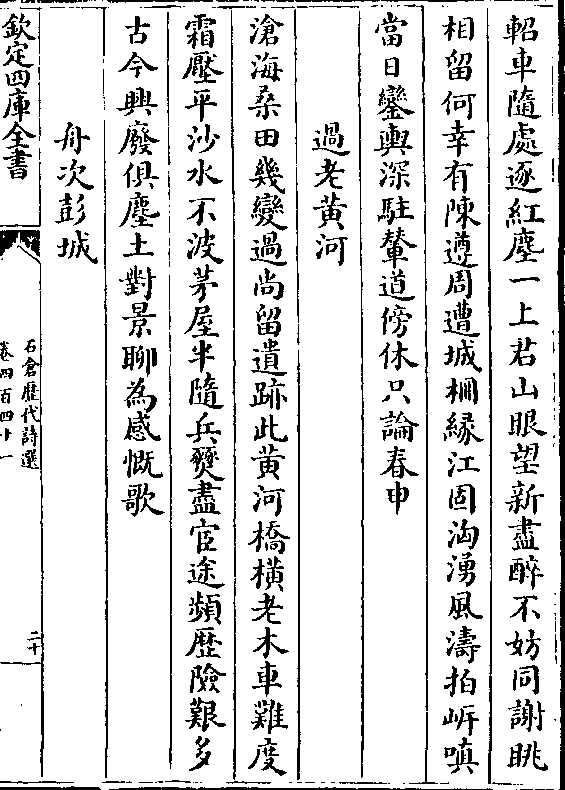 軺車隨處逐紅塵一上君山眼望新盡醉不妨同謝眺
相留何幸有陳遵周遭城柵縁江固洶湧風濤拍岍嗔
當日鑾輿深駐輦道傍休只論春申
過老黄河
滄海桑田幾變過尚留遺跡此黄河橋横老木車難度
霜壓平沙水不波茅屋半隨兵燹盡宦途頻歴險艱多
古今興廢俱塵土對景聊為感慨歌
舟次彭城
欽定四庫全書
石倉歴代詩選
卷四百四十一
二十